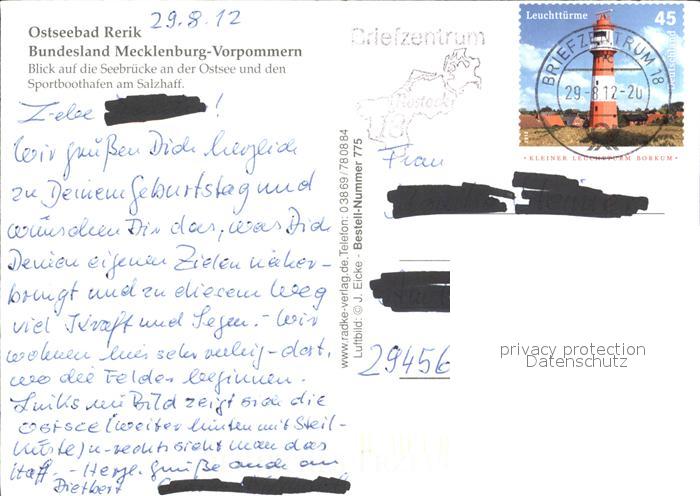 29.8.12
Ostseebad Rerik
Bundesland Mecklenburg-Vorpommern
Blick auf die Seebrücke an der Ostsee und den
Sportboothafen am Salzhaff.
Liebe !
Wir grüßen Dich herzlich
zu Deinem Geburtstag und
wünschen Dir das, was Dich
Deinen eigenen Zielen näher-
bringt und zu diesem Weg
viel Kraft und Segen. - Wir
wohnen hier sehr ruhig - dort,
wo die Felder beginnen.
Links im Bild zeigt sich die
Ostsee (weiter hinten mit Steil-
küste) u. rechts sieht man das
Haff. - Herzl. Grüße auch an
Dietbert
www.radke-verlag.de, Telefon: 03869/780884
Luftbild: © J. Eicke - Bestell-Nummer 775
Briefzentrum
Rostock
18
Leuchttürme 45
Deutschland
BRIEFZENTRUM 18
29.-8.12-20
2012
• KLEINER LEUCHTTURM BORKUM •
Frau
29456
privacy protection
Datenschutz